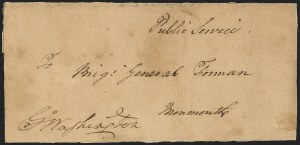 Public Service.
To
Brigr. General Forman
Monmouth
Go: Washington